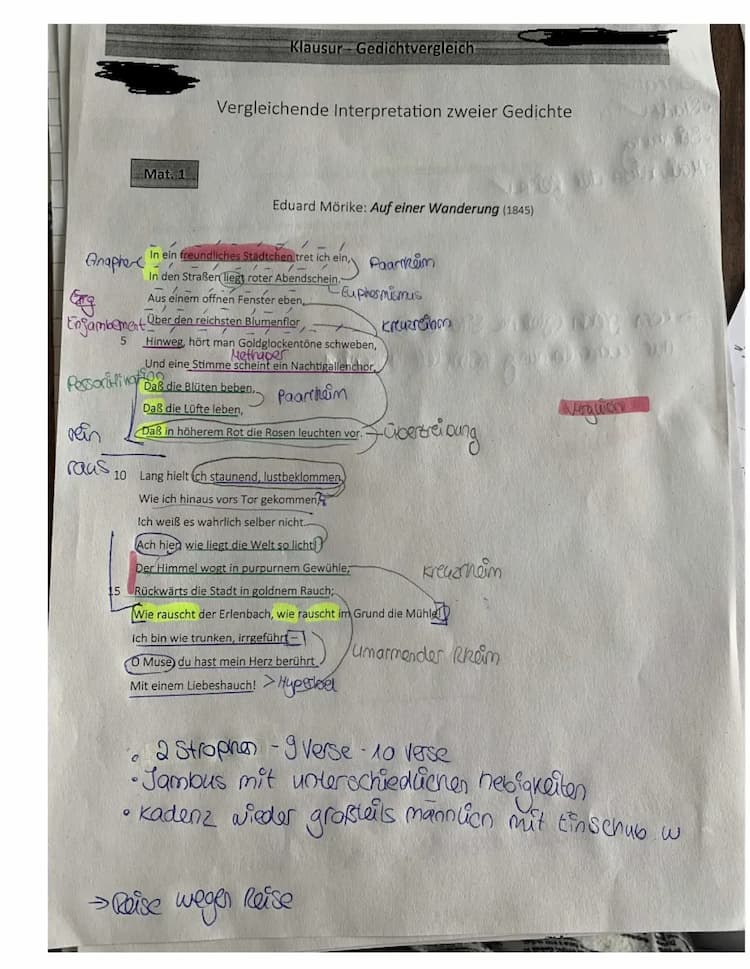 Klausur - Gedichtvergleich
Vergleichende Interpretation zweier Gedichte
Mat. 1
Eduard Mörike: Auf einer Wanderung (1845)
Anapher In ein freundliches Städtchen tret ich ein, Paarrheim
In den Straßen liegt roter Abendschein. Euphemismus
Aus einem offnen Fenster eben,
Enjambement Über den reichsten Blumenflor Kreuzreihm
5 Hinweg, hört man Goldglockentöne schweben,
Methaper
Und eine Stimme scheint ein Nachtigallenchor,
Daß die Blüten beben, Paarrheim
Daß die Lüfte leben,
rein Daß in höherem Rot die Rosen leuchten vor. Übertreibung
Vergleich
raus 10 Lang hielt ich staunend, lustbeklommen.
Wie ich hinaus vors Tor gekommen,
Ich weiß es wahrlich selber nicht.
Ach hier, wie liegt die Welt so licht!
Der Himmel wogt in purpurnem Gewühle, Kreuzrheim
15 Rückwärts die Stadt in goldnem Rauch;
Wie rauscht der Erlenbach, wie rauscht im Grund die Mühle!
Ich bin wie trunken, irrgeführt –
O Muse, du hast mein Herz berührt Umarmender Rheim
Mit einem Liebeshauch! > Hyperbel
• 2 Strophen - 9 Verse - 10 Verse
• Jambus mit unterschiedlichen hebigkeiten
• Kadenz wieder großteils männlich mit Einschub w
→ Reise wegen Reise